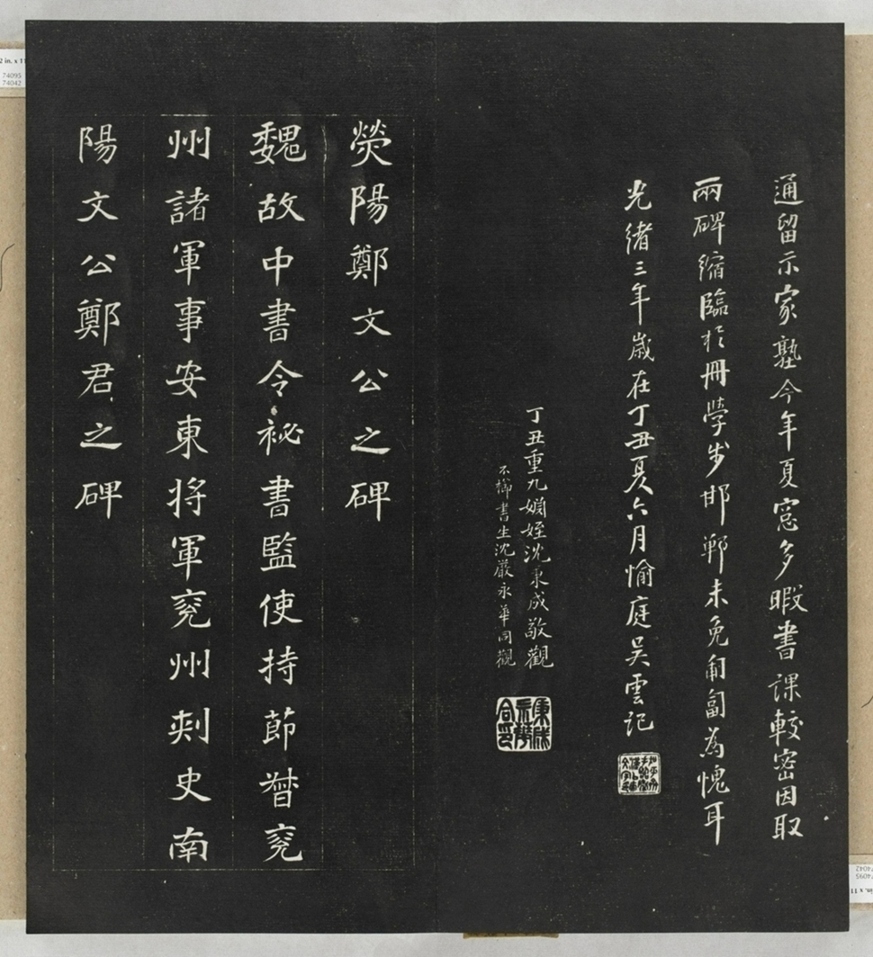 通留示家塾今年夏窓多暇書課較密因取
兩碑縮臨於冊學步邯鄲未免匍匐為愧耳
光緒三年歲在丁丑夏六月愉庭吳雲記
丁丑重九嫺姪沈秉成敬觀
不櫛書生沈嚴永華同觀
熒陽鄭文公之碑
魏故中書令祕書監使持節督兗
州諸軍事安東將軍兗州刺史南
陽文公鄭君之碑